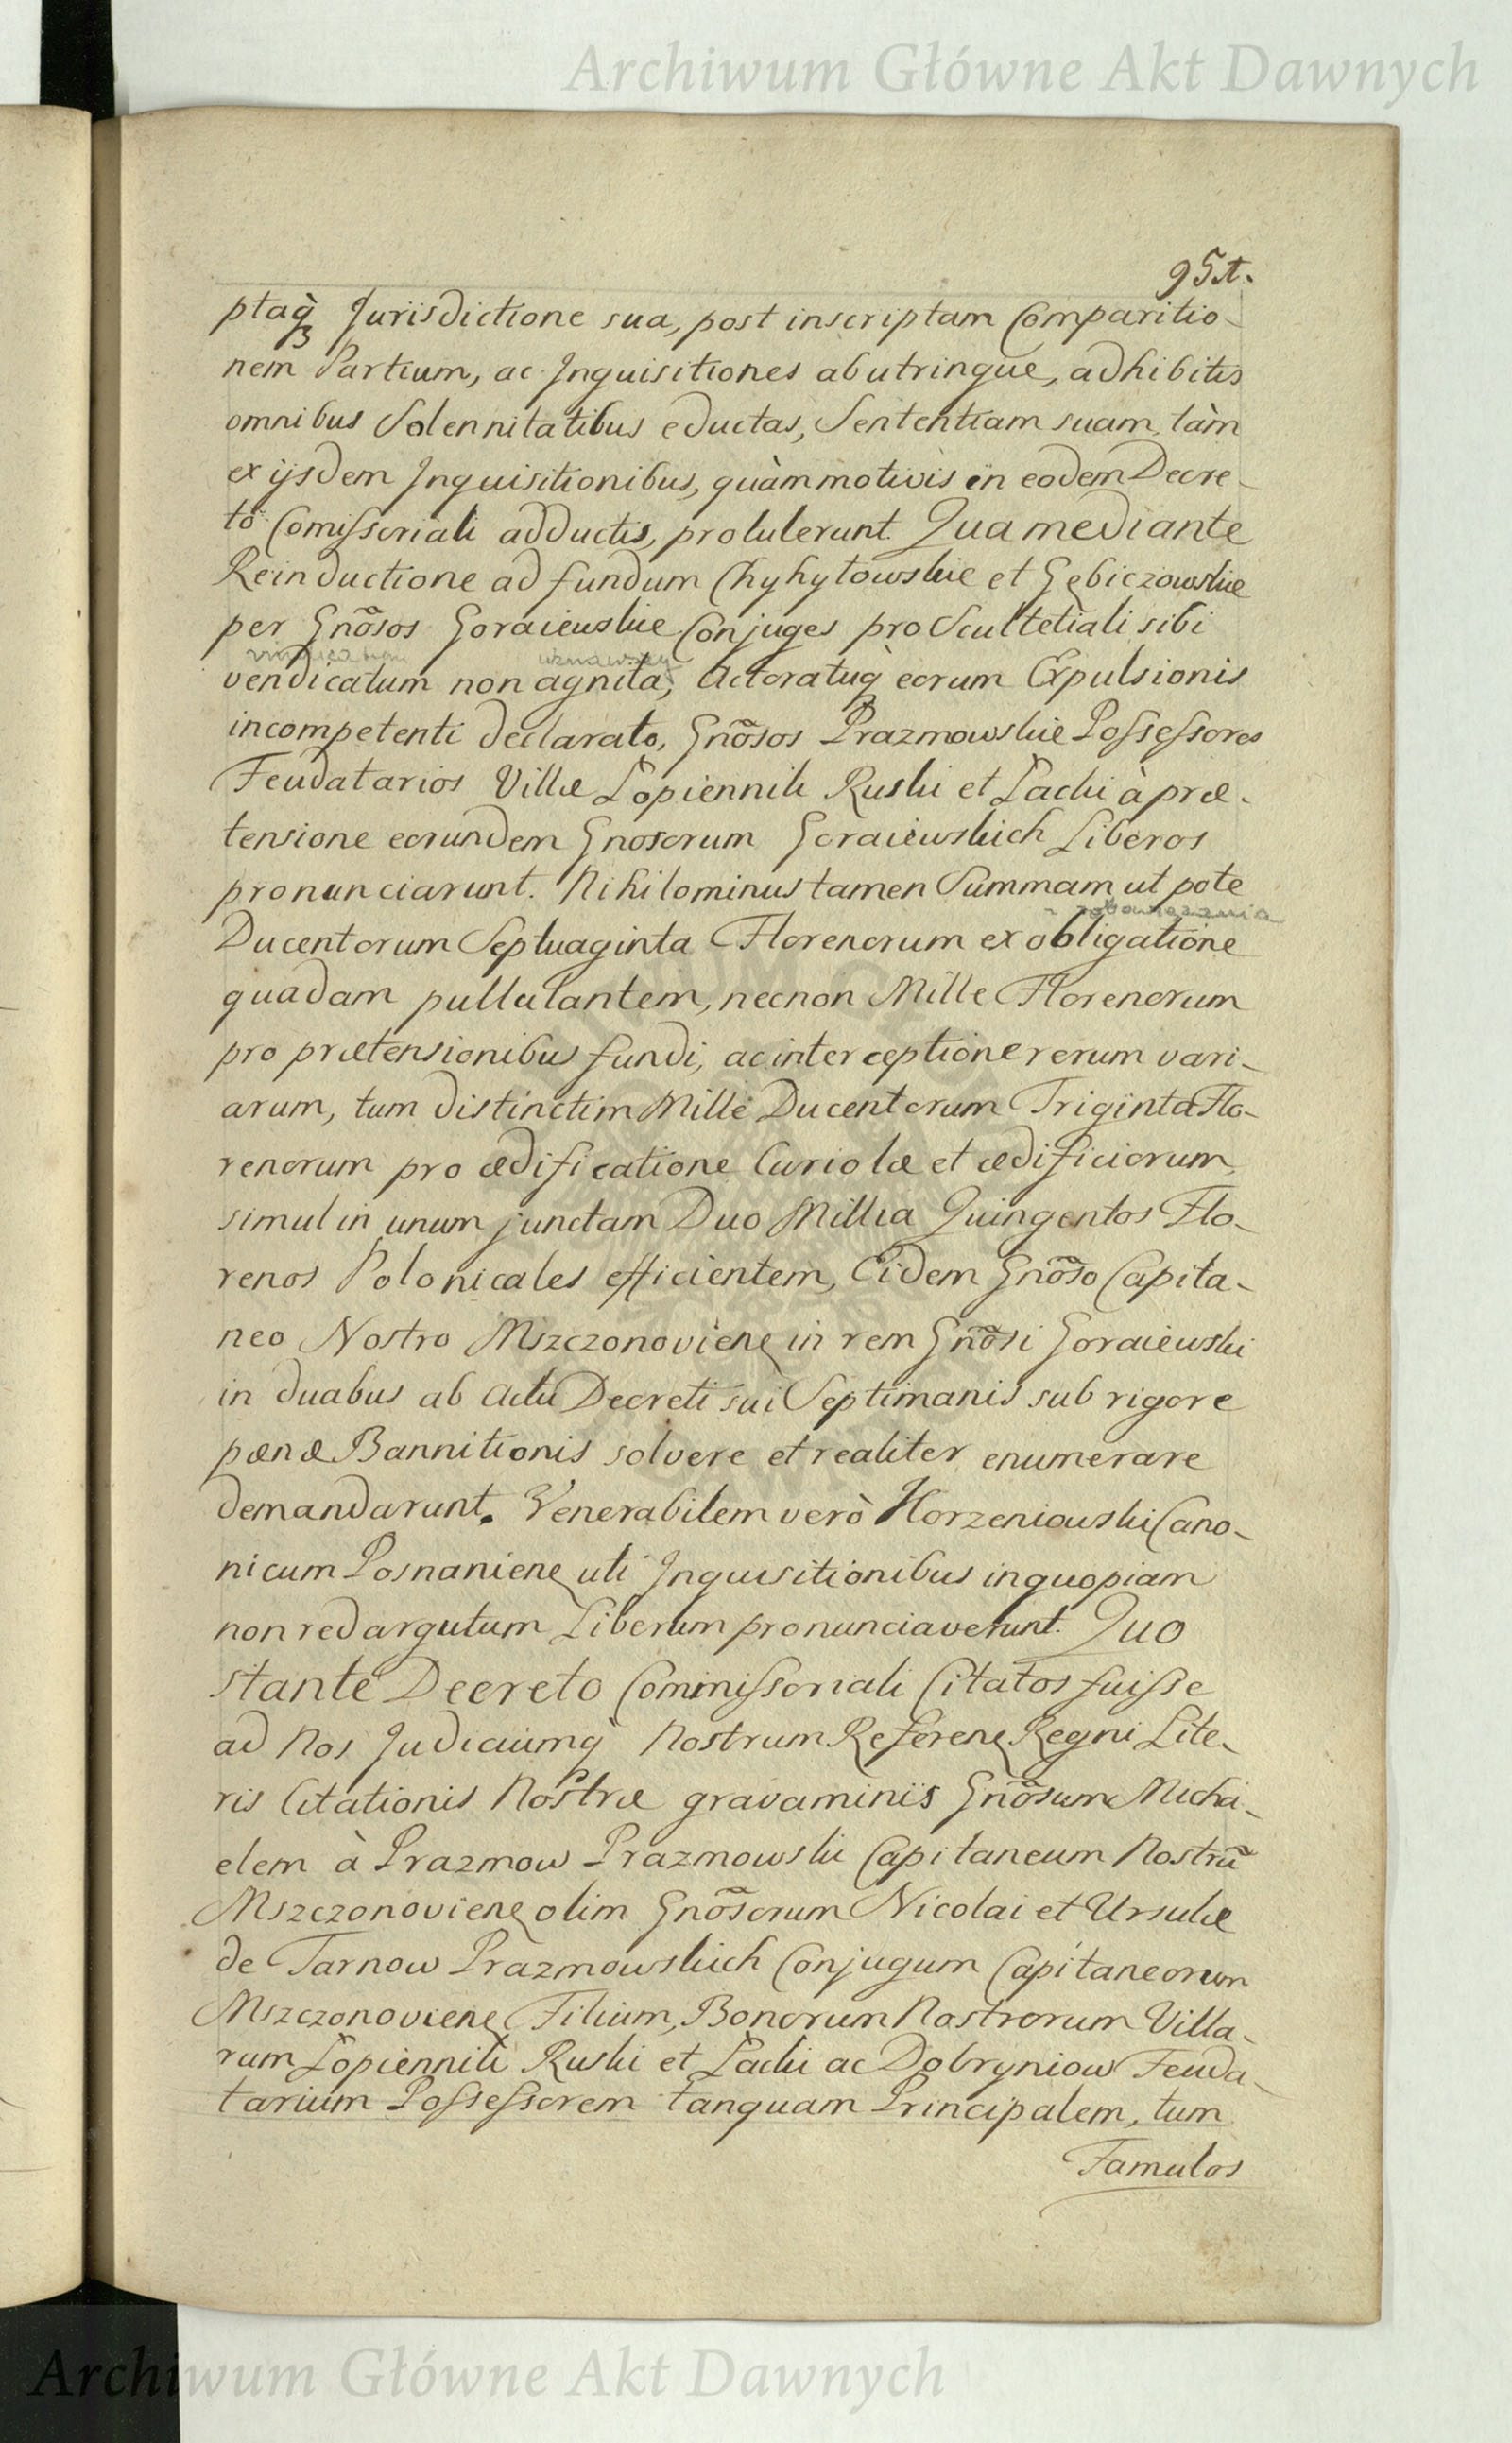 Archiwum Główne Akt Dawnych
95t.
ptaqȝ Jurisdictione sua, post inscriptam Comparitio-
nem Partium, ac Jnquisitiones ab utrinque, adhibitis
omnibus Solennitatibus eductas, Sententiam suam tàm
ex ijsdem Jnquisitionibus, quàm motivis in eodem Decre-
to Comissoriali adductis, protulerunt. Qua mediante
Reinductione ad fundum Chyhytowskie et Gębiczowskie
per Gnõsos Goraiewskie Conjuges pro Scultetiali sibi
uznawszy
vendicatum non agnita, Actoratuq̀ eorum Expulsionis
incompetenti declarato, Gnõsos Prazmowskie Possessores
Feudatarios Villæ Łopiennik Ruski et Lacki à præ-
tensione eorundem Gnosorum Goraiewskich Liberos
pronunciarunt. Nihilominus tamen Summam ut pote
z zobowiązania
Ducentorum Septuaginta Florenorum ex obligatione
quadam pullulantem, necnon Mille Florenorum
pro prætensionibus fundi, ac interceptione rerum vari-
arum, tum distinctim Mille Ducentorum Triginta Flo-
renorum pro ædificatione Curiolæ et ædificiorum
simul in unum junctam Duo Millia Quingentos Flo-
renos Polonicales efficientem, Eidem Gnõso Capita-
neo Nostro Mszczonoviene in rem Gnõsi Goraiewski
in duabus ab Actu Decreti sui Septimanis sub rigore
pænæ Bannitionis solvere et realiter enumerare
demandarunt. Venerabilem verò Korzeniowski Cano-
nicum Posnaniene uti Jnquisitionibus in quopiam
non redargutum Liberum pronunciaverunt. Quo
stante Decreto Commissoriali Citatos fuisse
ad Nos Judiciumq̀ Nostrum Referene Regni Lite-
ris Citationis Nostræ gravaminis Gnõsum Micha-
elem à Prazmow Prazmowski Capitaneum Nostrũ
Mszczonoviene olim Gnõsorum Nicolai et Ursulæ
de Tarnow Prazmowskich Conjugum Capitaneorum
Mszczonoviene Filium, Bonorum Nostrorum Villa-
rum Łopiennik Ruski et Lacki ac Dobryniow Feuda-
tarium Possessorem tanquam Principalem, tum
Famulos
Archiwum Główne Akt Dawnych